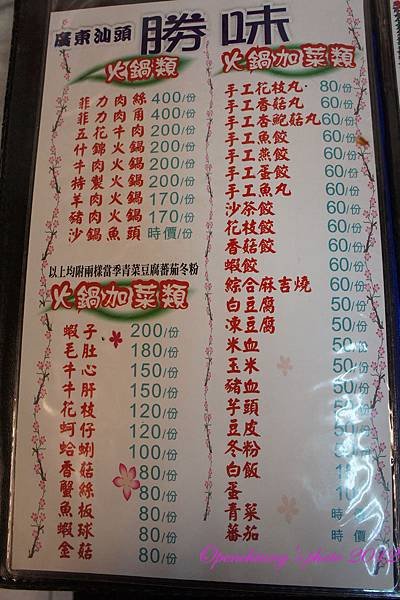 廣東汕頭 勝味
火鍋類
菲力肉絲 400/份
菲力肉角 400/份
五花牛肉 200/份
什錦火鍋 200/份
牛肉火鍋 200/份
特製火鍋 200/份
羊肉火鍋 170/份
豬肉火鍋 170/份
沙鍋魚頭 時價/份
以上均附兩樣當季青菜豆腐蕃茄冬粉
火鍋加菜類
蝦子 200/份
毛肚 180/份
牛心 150/份
牛肝 150/份
花枝 120/份
蚵仔 120/份
蛤蜊 100/份
香菇 80/份
蟹絲 80/份
魚板 80/份
蝦球 80/份
金菇 80/份
火鍋加菜類
手工花枝丸 80/份
手工香菇丸 60/份
手工杏鮑菇丸 60/份
手工魚餃 60/份
手工燕餃 60/份
手工蛋餃 60/份
手工魚丸 60/份
沙茶餃 60/份
花枝餃 60/份
香菇餃 60/份
蝦餃 60/份
綜合麻吉燒 60/份
白豆腐 50/份
凍豆腐 50/份
米血 50/份
玉米 50/份
豬血 50/份
芋頭 50/份
豆皮 50/份
冬粉 50/份
白飯
蛋 10
青菜 時
蕃茄 時